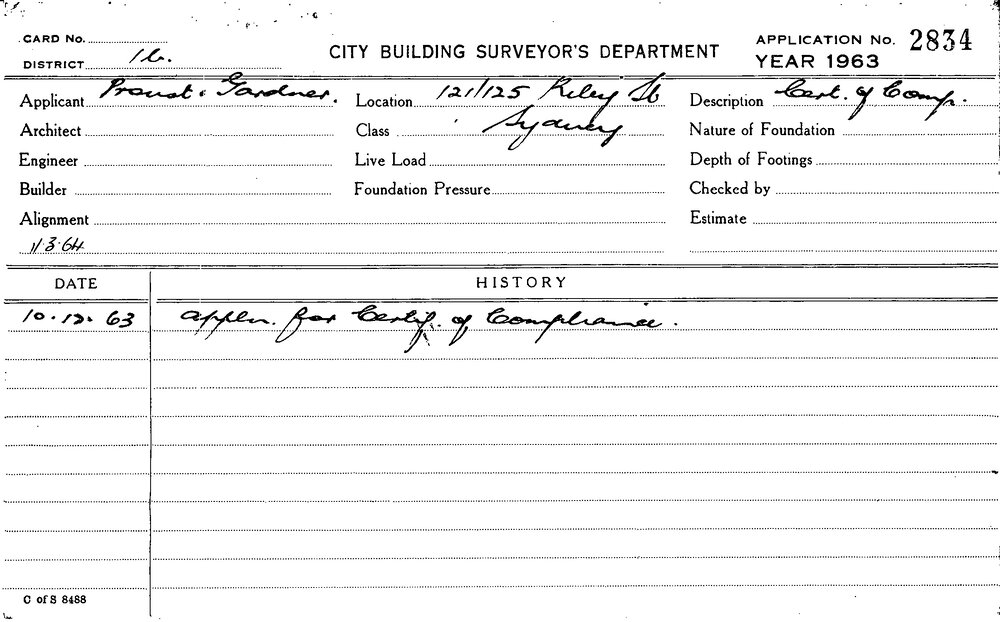 CARD No.
DISTRICT 1b.
CITY BUILDING SURVEYOR'S DEPARTMENT
APPLICATION No. 2834
YEAR 1963
Applicant Proust & Gardner. Location 121/125 Riley St Description Cert. of Comp.
Architect Class Sydney Nature of Foundation
Engineer Live Load Depth of Footings
Builder Foundation Pressure Checked by
Alignment Estimate
11·3·64
DATE HISTORY
10·12·63 Appln. for Certif. of Compliance.
C of S 8488